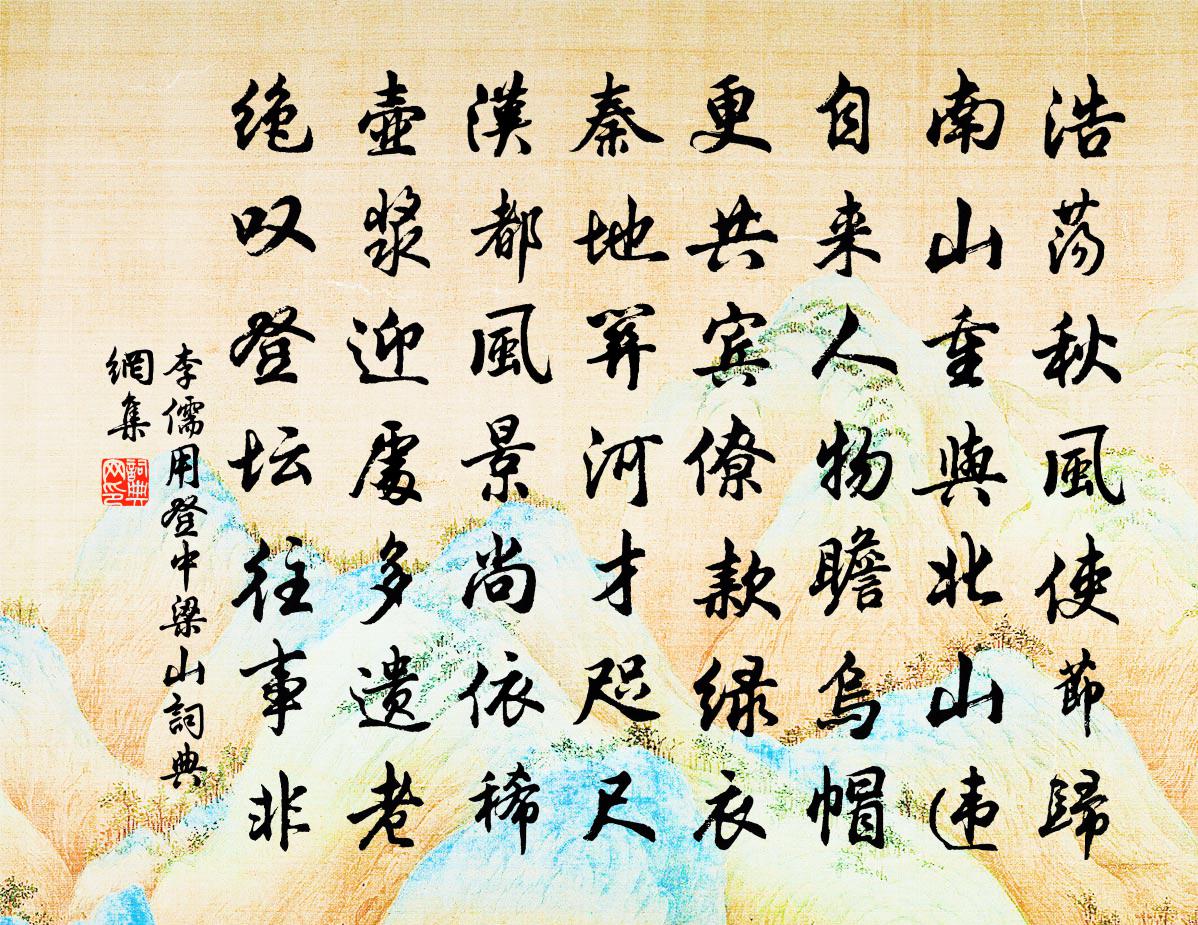 浩荡秋風使節歸
南山重與北山违
自来人物瞻烏帽
更共宾僚款绿衣
秦地関河才咫尺
漢都風景尚依稀
壺浆迎處多遗老
绝叹登坛往事非
李儒用登中梁山詞典
網集
詞典网印